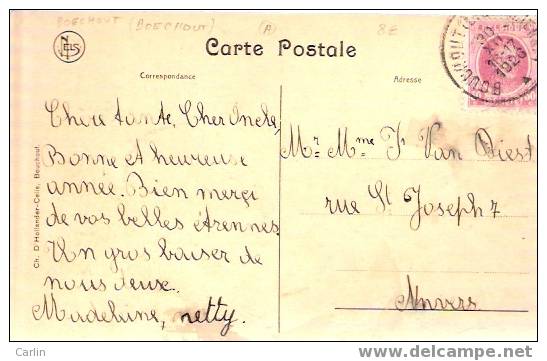 BOECHOUT (BOECHOUT) (A) 8E
NELS
Carte Postale
Correspondance
Adresse
Chère tante, Cher Oncle,
Bonne et heureuse
année. Bien merçi
de vos belles étrennes
Un gros baiser de
nous deux.
Madeleine, netty.
Mr. Mme Js Van Diest
rue St Joseph 7
Anvers
Ch. D'Hollander-Celis, Bouchout.
BOUCHOUT
30
XII
1925
Carlin
http://www.delcampe.net